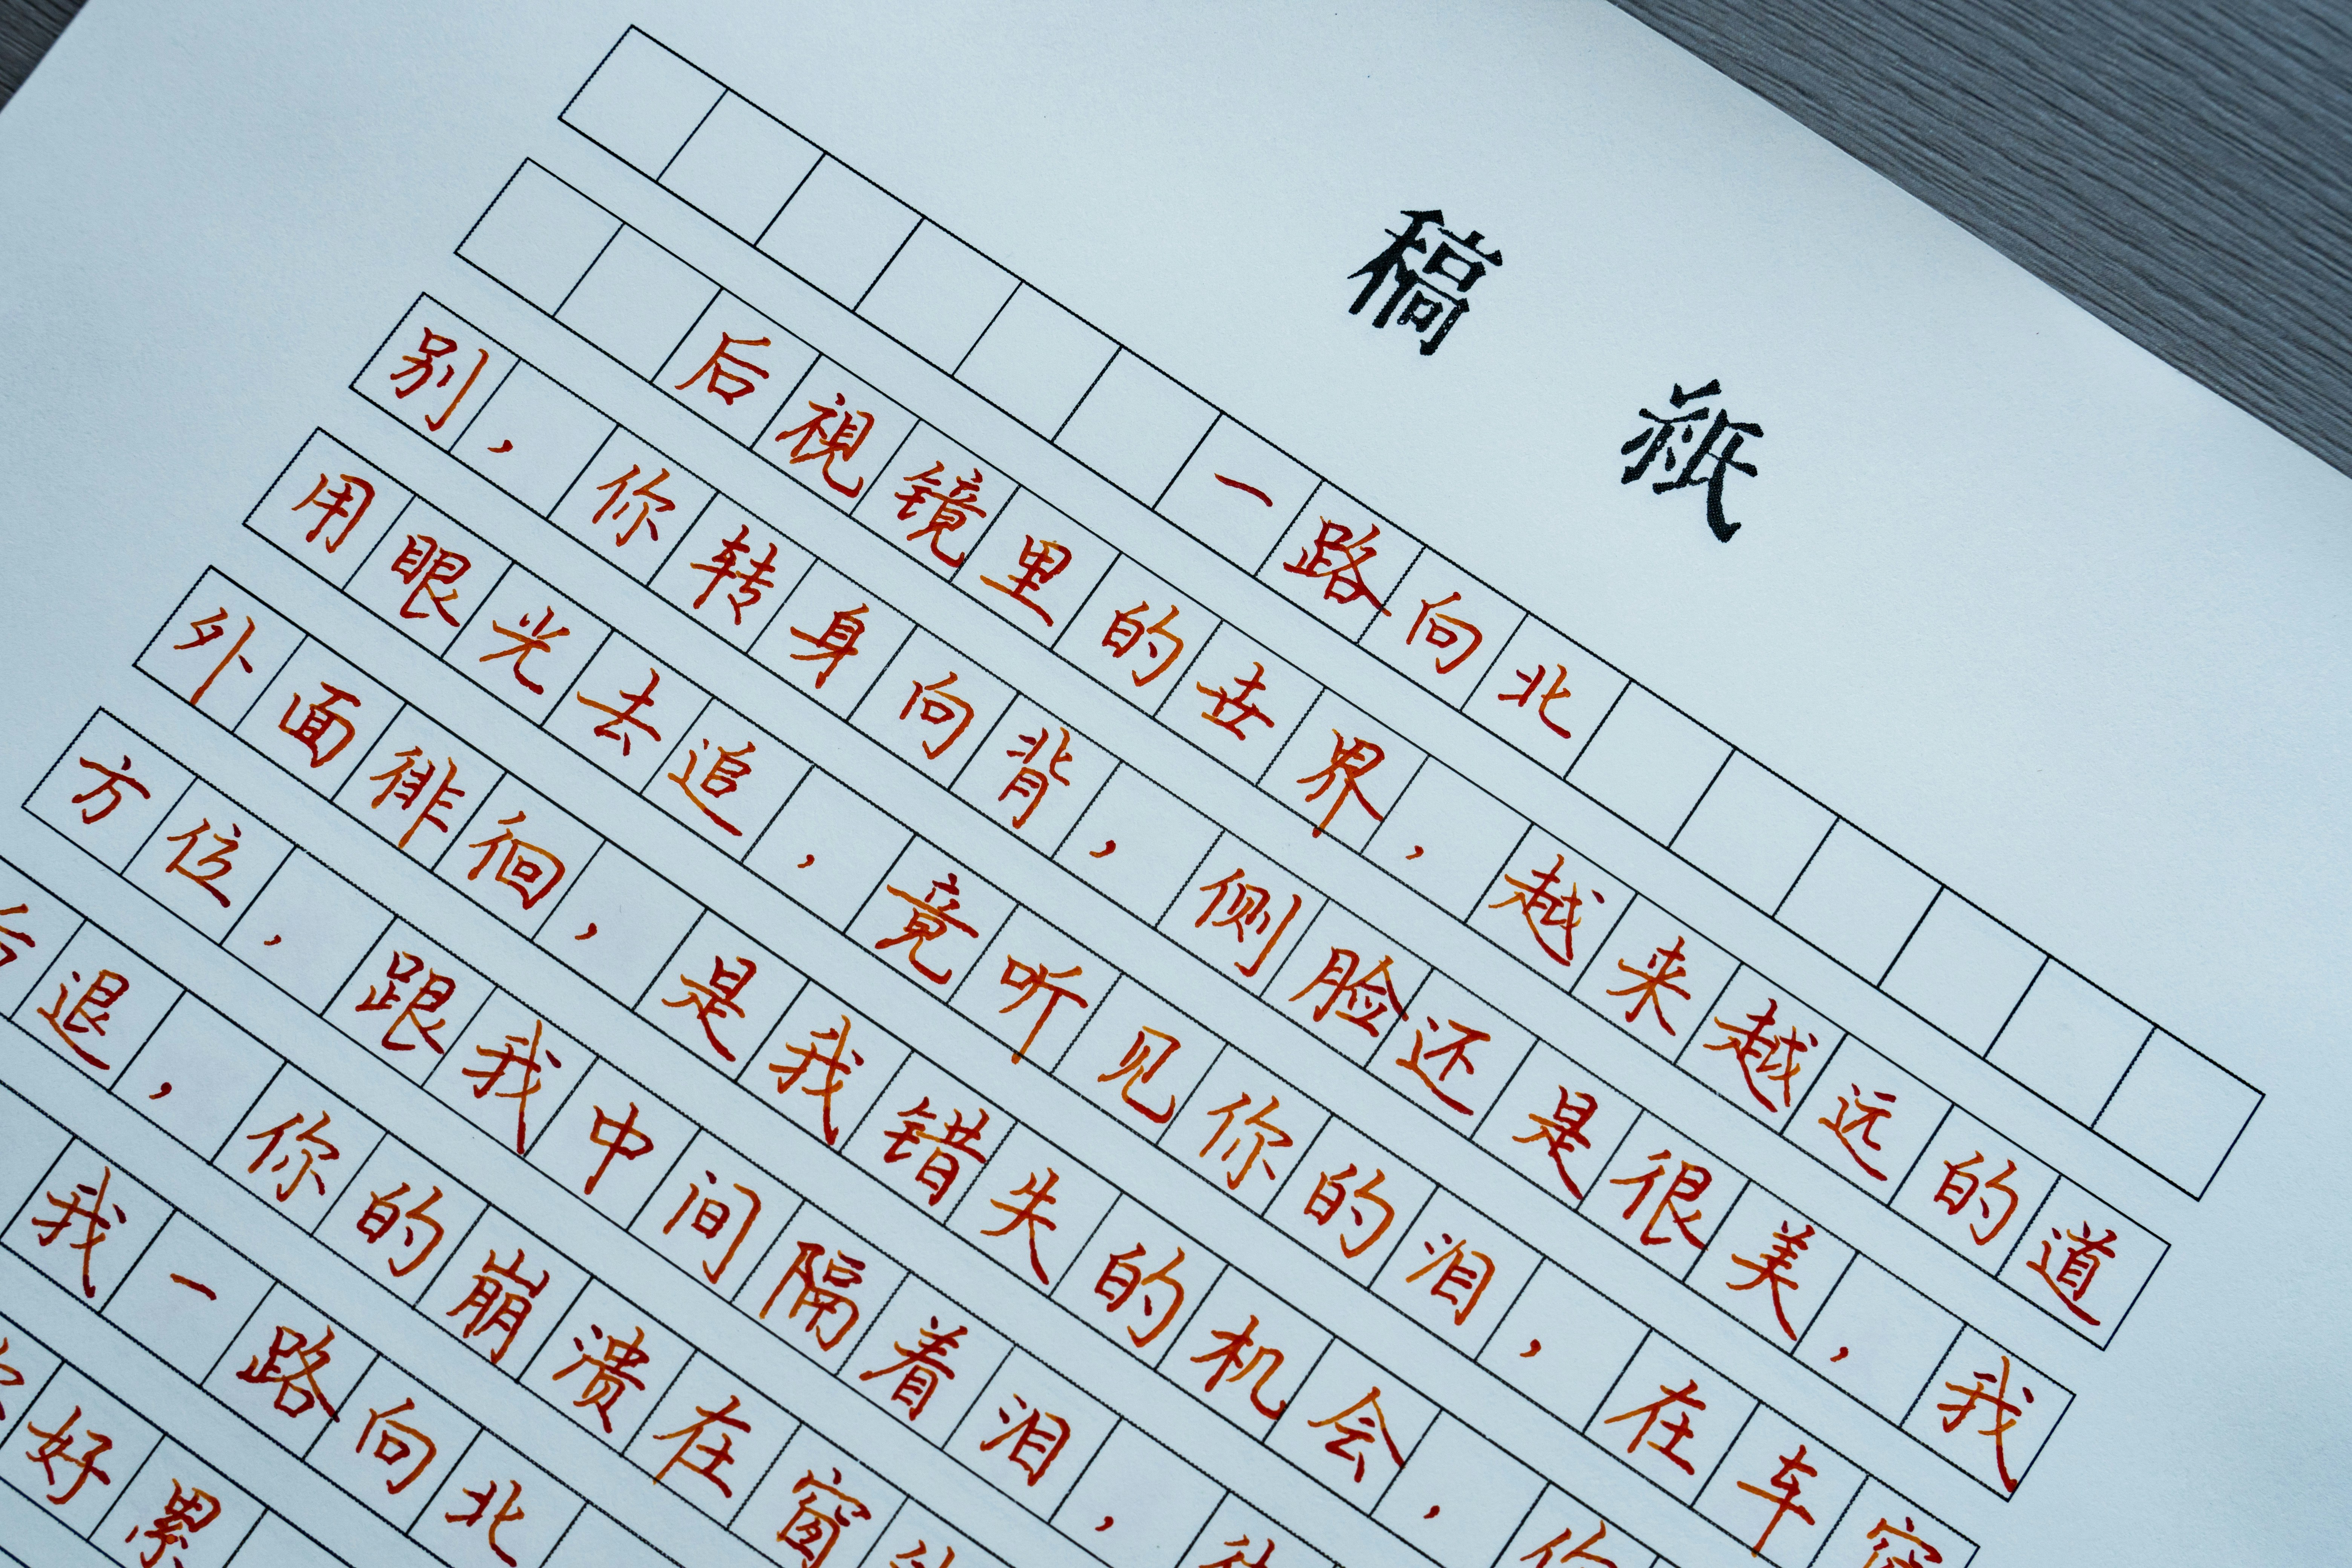 稿紙
一路向北
后視镜里的世界，越来越远的道
别，你转身向背，侧脸还是很美，我
用眼光去追，竟听见你的泪，在车
外面徘徊，是我错失的机会，
方位，跟我中间隔着泪，
退，你的崩溃在窗
我一路向北
好累